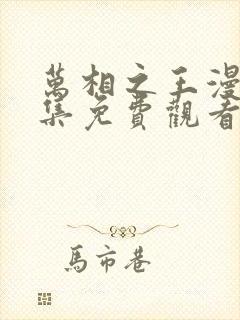 萬相之王漫
集免費觀看
馬市巷